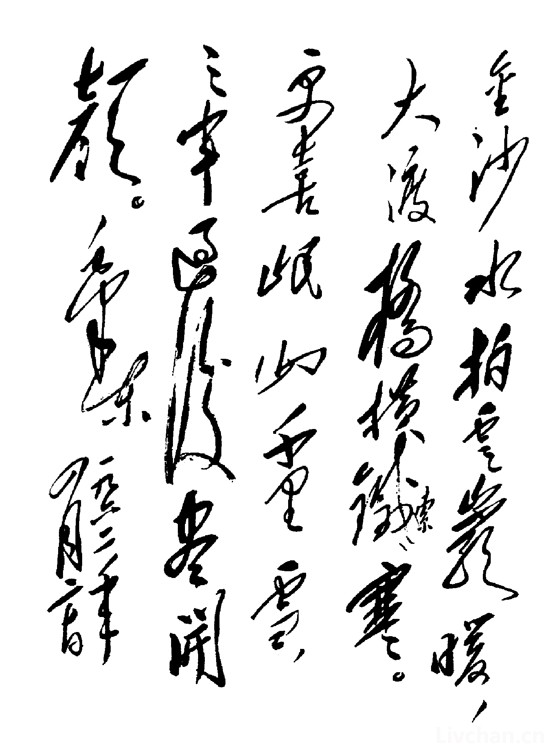 金沙水拍雲巖暖，
大渡橋橫鐵索寒。
更喜岷山千里雪，
三軍過後盡開
顏。毛澤東 一九六二年
四月
Livchan.cn